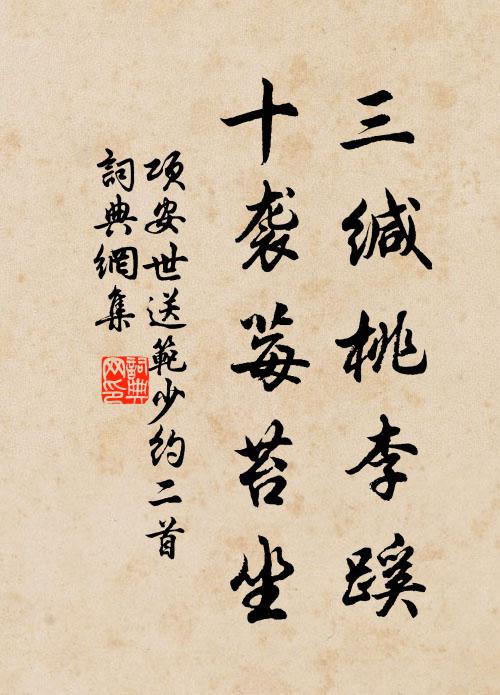 三缄桃李蹊
十袭莓苔坐
项安世送範少约二首
詞典網集
詞典网印